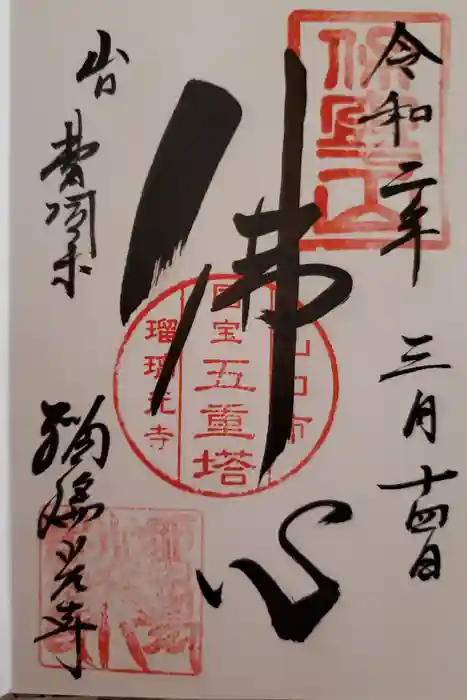 令和二年 三月十四日
保寧山
佛心
山口市
国宝五重塔
瑠璃光寺
瑠璃光寺